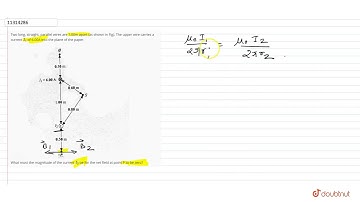 11314286
Two long, straight, parallel wires are 1.00m apart (as shown in fig). The upper wire carries a
current I₁ of 6.00A into the plane of the paper.
R
0.50 m
I₁ = 6.00 A
0.60 m
1.00 m
S
0.80 m
I₂
0.50 m
B₁ B₂
What must the magnitude of the current I₂ be for the net field at point P to be zero?
μ₀ I₁ / 2π r₁ = μ₀ I₂ / 2π r₂
doubtnut